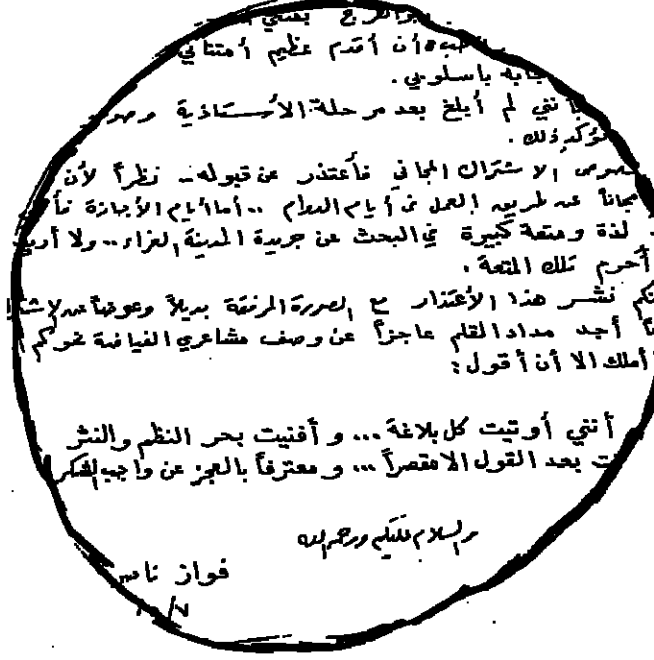 أن أقدم عظيم أمتناني
بأسلوبي .
نني لم أبلغ بعد مرحلة الأستاذية
ذلك .
الاشتراك المجاني فأعتذر عن قبوله .. نظراً لأن
مجاناً عن طريق العمل في أيام الدوام .. أما أيام الأجازة فأ
لذة ومتعة كبيرة في البحث عن جريدة المدينة الغراء .. ولا أريد
أحرم تلك المتعة .
نشر هذا الأعتذار مع الصورة المرفقة بديلاً وعوضاً عن لإشترا
أجد مداد القلم عاجزاً عن وصف مشاعري الفياضة نحوكم
أملك الا أن أقول :
أنني أوتيت كل بلاغة ... و أفنيت بحر النظم والنثر
ت بعد القول الا مقصراً ... و معترفاً بالعجز عن واجب الشكر
والسلام عليكم ورحمة الله
فواز ناصر